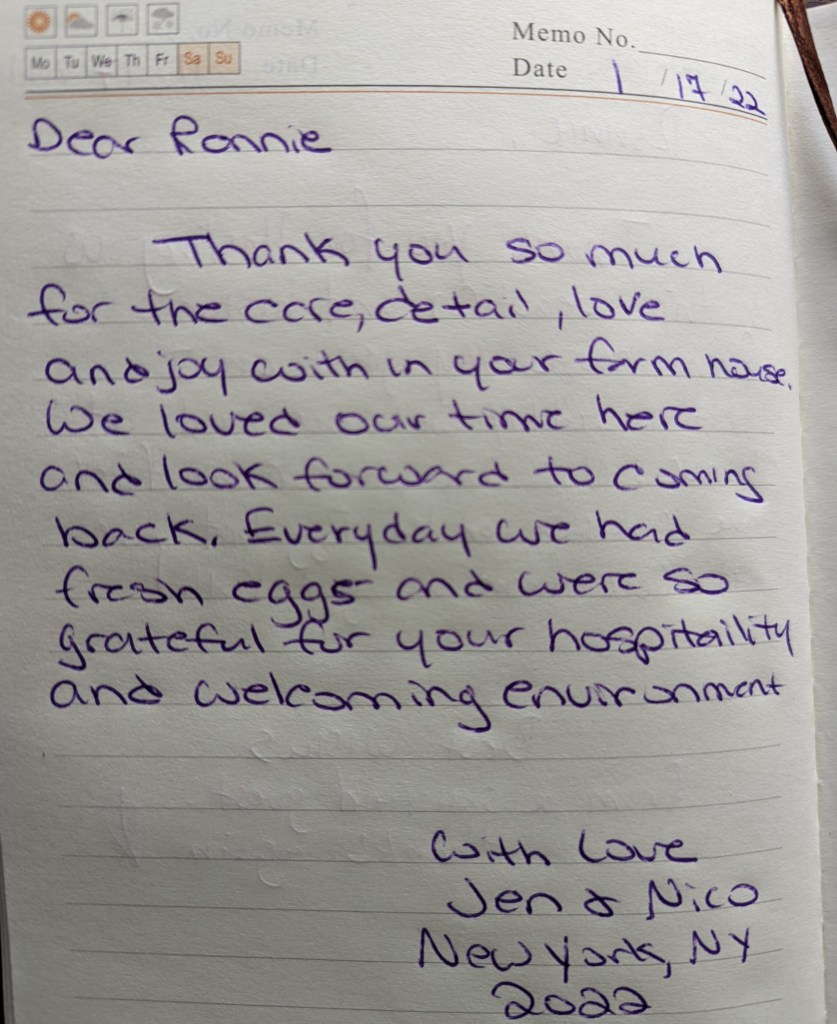 Memo No.
Mo Tu We Th Fr Sa Su
Date 1/17/22
Dear Ronnie
Thank you so much
for the care, detail, love
and joy with in your farm house.
We loved our time here
and look forward to coming
back. Everyday we had
fresh eggs and were so
grateful for your hospitaility
and welcoming environment
With Love
Jen & Nico
New York, NY
2022